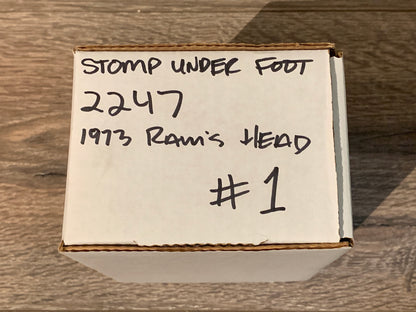 STOMP UNDER FOOT
2247
1973 RAM'S HEAD
#1